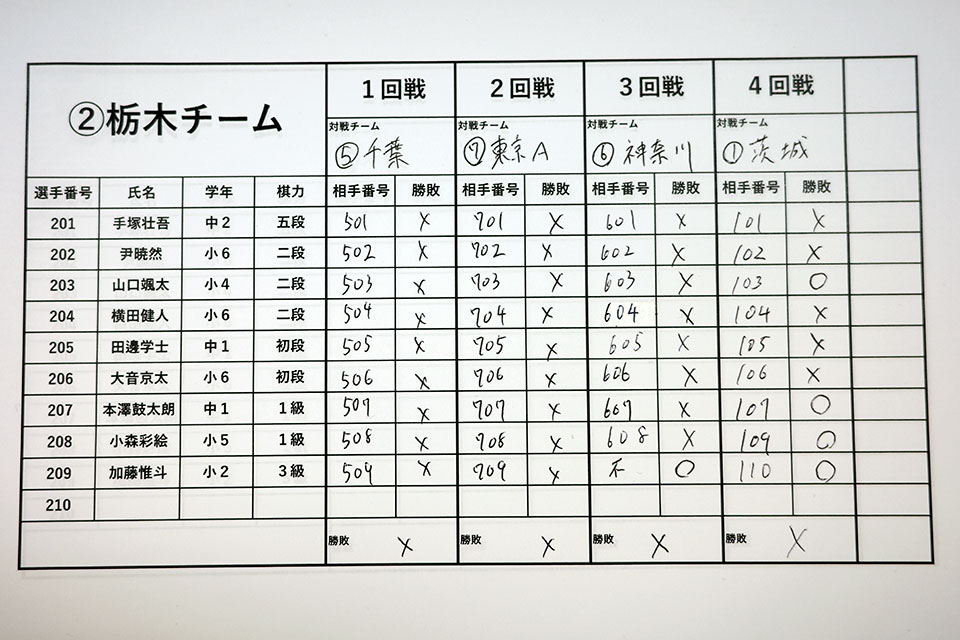 ②栃木チーム 1回戦 2回戦 3回戦 4回戦
対戦チーム 対戦チーム 対戦チーム 対戦チーム
⑤千葉 ⑦東京A ⑥神奈川 ①茨城
選手番号 氏名 学年 棋力 相手番号 勝敗 相手番号 勝敗 相手番号 勝敗 相手番号 勝敗
201 手塚壮吾 中2 五段 501 × 701 × 601 × 101 ×
202 尹暁然 小6 二段 502 × 702 × 602 × 102 ×
203 山口颯太 小4 二段 503 × 703 × 603 × 103 ○
204 横田健人 小6 二段 504 × 704 × 604 × 104 ×
205 田邊学士 中1 初段 505 × 705 × 605 × 105 ×
206 大音京太 小6 初段 506 × 706 × 606 × 106 ×
207 本澤鼓太朗 中1 1級 507 × 707 × 607 × 107 ○
208 小森彩絵 小5 1級 508 × 708 × 608 × 109 ○
209 加藤惟斗 小2 3級 509 × 709 × 不 ○ 110 ○
210
勝敗 × 勝敗 × 勝敗 × 勝敗 ×